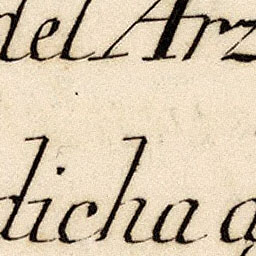 del Arz
dicha